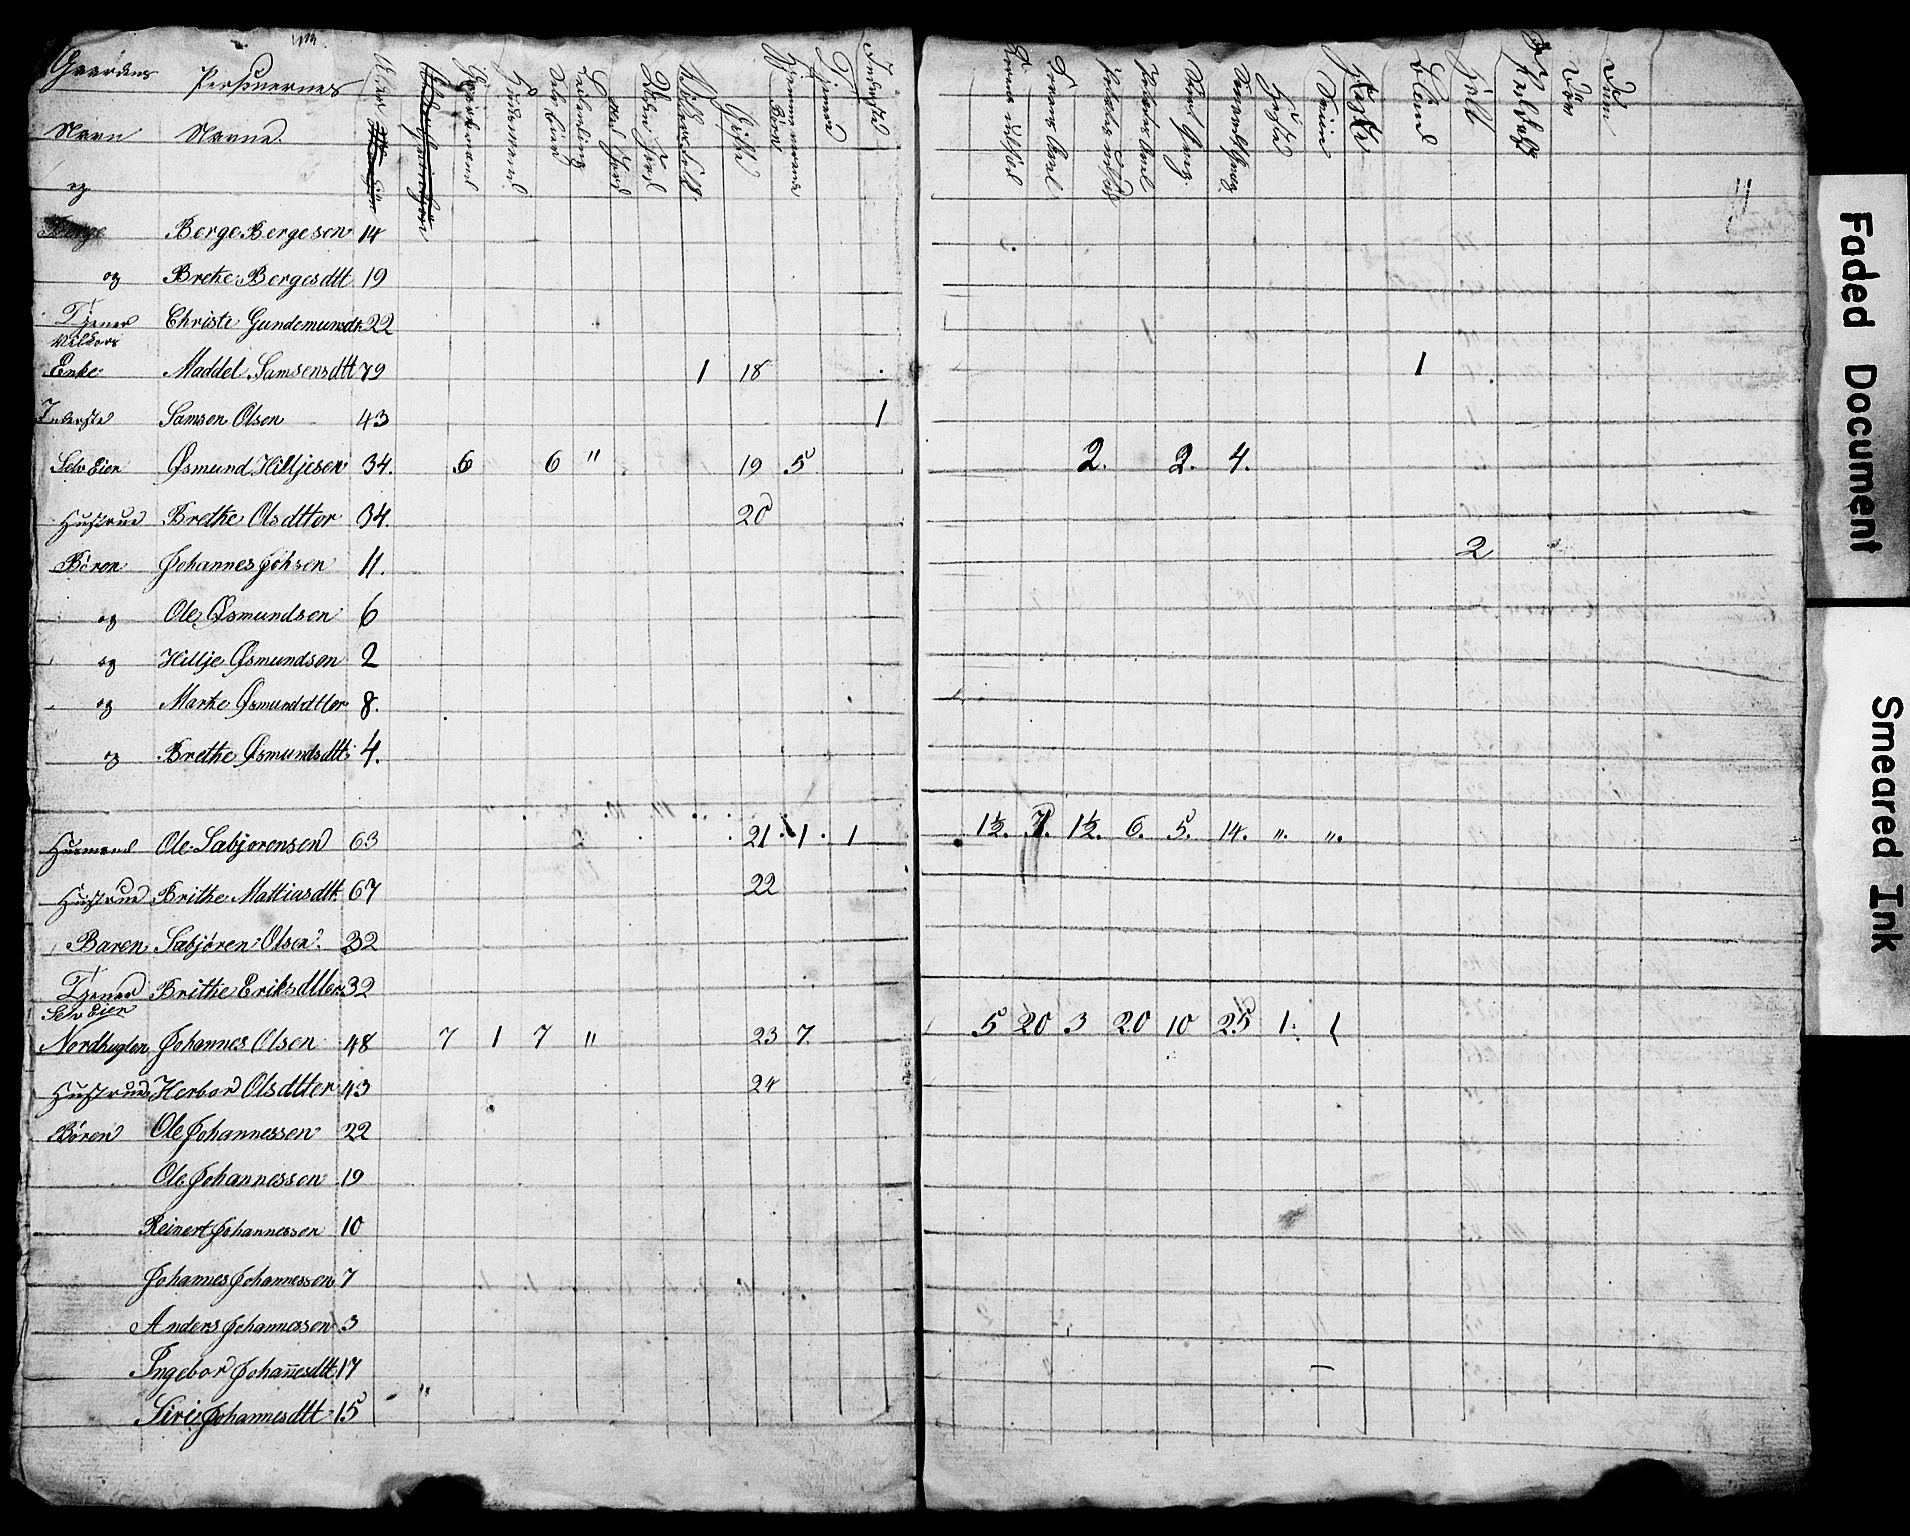 Gaardens Personernes Alder Gaardmænd Huusmænd Selv Eier Leilending Med Jord Uden Jord Gifte Hjemmeværende Børn Tjenere Inderste
Navn Navne
og
Børge Børge Børgesen 14
og Brethe Børgesdtt 19
Tjener Christi Gundemundsdt 22
Vilkors
Enke Maddel Samsensdtt 79 1 18 1
Inderste Samson Olsen 43 1
Selv Eier Øsmund Hilljesen 34. 6 6 " 19 5 2. 2. 4.
Hustrue Brethe Olsdtter 34. 20
Børen Johannes Johsen 11. 2
og Ole Øsmundsen 6
og Hillje Øsmundsen 2
og Marthe Øsmundsdtter 8.
og Brethe Øsmundsdtt 4.
Husmand Ole Sabjørensen 63 21 1 1 1½. 7. 1½. 6. 5. 14. ". ".
Hustrue Brithe Mattiasdtt. 67 22
Børen Sabjøren Olsen. 32
Tjener Brithe Eriksdtter 32
Selv Eier
Nordhuglen Johannes Olsen 48 7 1 7 " 23 7 5 20 3 20 10 25 1. 1
Hustrue Herbor Olsdtter 43 24
Børen Ole Johannessen 22
Ole Johannessen 19
Reinert Johannessen 10
Johannes Johannessen 7
Anders Johannessen 3
Ingebor Johanesdtt 17
Siri Johannesdtt 15 "
Faded Document
Smeared Ink